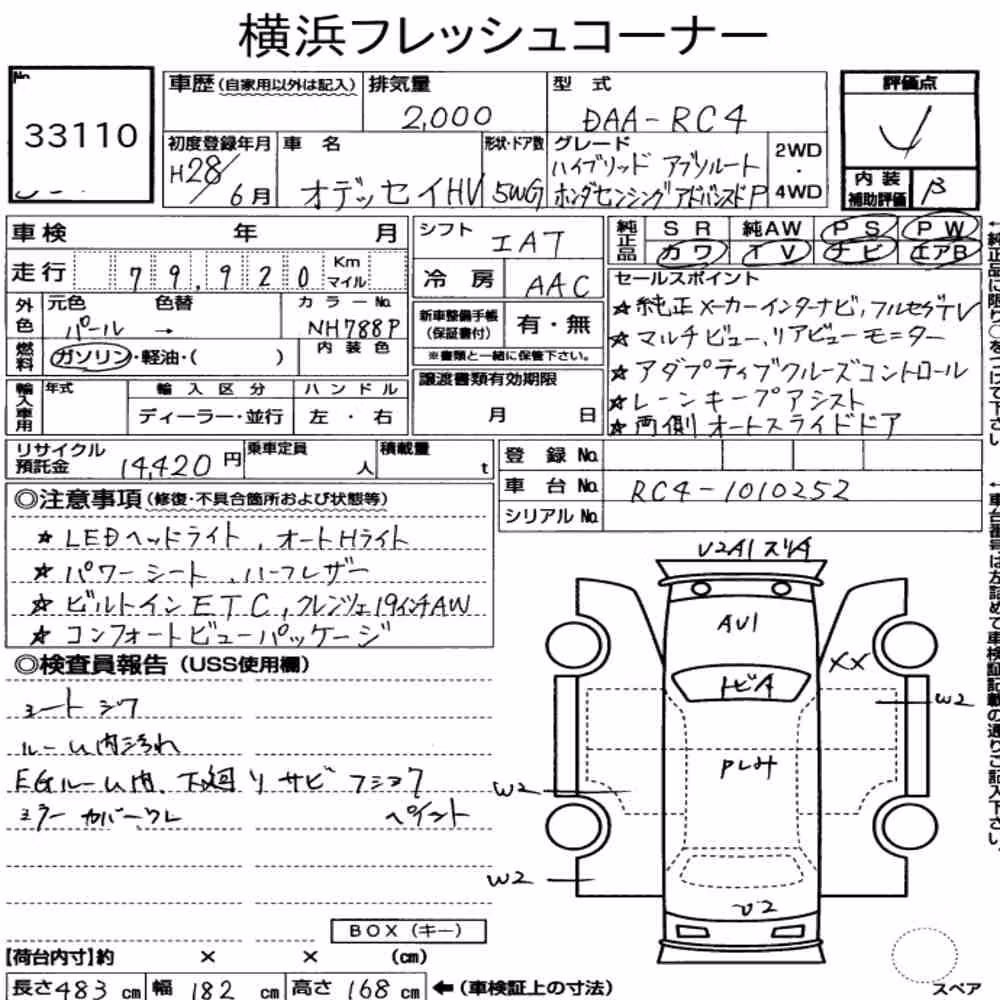 横浜フレッシュコーナー
No.
33110
車歴(自家用以外は記入)
排気量
2,000
型 式
DAA-RC4
評価点
4
初度登録年月
H28/6月
車 名
オデッセイHV
形状・ドア数
5WG
グレード
ハイブリッド アブソルート
ホンダセンシング アドバンスドP
2WD
・
4WD
内 装
補助評価
B
車検 年 月
走行 79,920 Km
マイル
シフト IAT
冷 房 AAC
純正品
SR 純AW PS PW
カワ TV ナビ エアB
外色
元色 色替 カラーNo.
パール → NH788P
燃料
ガソリン・軽油・( )
内 装 色
新車整備手帳
(保証書付)
有・無
※書類と一緒に保管下さい。
セールスポイント
★純正メーカーインターナビ,フルセグTV
★マルチビュー,リアビューモニター
★アダプティブクルーズコントロール
★レーンキープアシスト
★両側オートスライドドア
輸入車用
年式
輸入区分
ディーラー・並行
ハンドル
左・右
譲渡書類有効期限
月 日
リサイクル
預託金 14,420円
乗車定員
人
積載量
t
登 録 No.
車 台 No. RC4-1010252
シリアル No.
◎注意事項(修復・不具合箇所および状態等)
★LEDヘッドライト,オートHライト
★パワーシート,ハーフレザー
★ビルトインETC,クレンツェ19インチAW
★コンフォートビューパッケージ
◎検査員報告(USS使用欄)
シートシワ
ルーム内汚れ
EGルーム内、下廻りサビ フショク
ミラーカバーウレ ペイント
U2A1スリA
AU1
トビA
XX
W2
W2
W2
U2
BOX(キー)
【荷台内寸】約 × × (cm)
長さ483cm 幅182cm 高さ168cm ←(車検証上の寸法)
スペア
←純正品に限り○をつけて下さい
←車台番号は左詰めで車検証記載の通りご記入下さい。